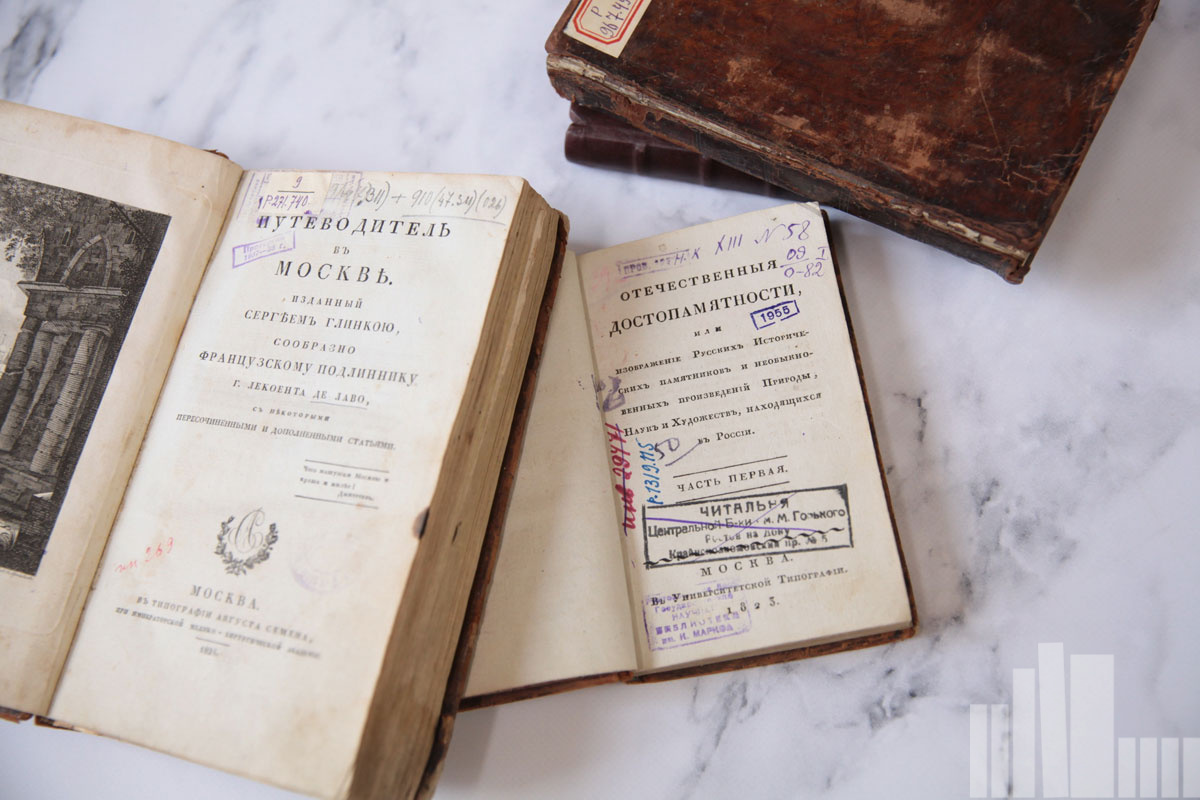 9
1Р-271.740.
+ 910(47.311)(026)
ПУТЕВОДИТЕЛЬ
ВЪ
МОСКВѢ,
ИЗДАННЫЙ
СЕРГѢЕМЪ ГЛИНКОЮ,
СООБРАЗНО
ФРАНЦУЗСКОМУ ПОДЛИННИКУ
Г. ЛЕКОЕНТА ДЕ ЛАВО,
СЪ НѢКОТОРЫМИ
ПЕРЕСОЧИНЕННЫМИ И ДОПОЛНЕННЫМИ СТАТЬЯМИ.
МОСКВА.
ВЪ ТИПОГРАФІИ АВГУСТА СЕМЕНА,
ПРИ ИМПЕРАТОРСКОЙ МЕДИКО-ХИРУРГИЧЕСКОЙ АКАДЕМІИ
XIII N 58
09 I
0-82
ОТЕЧЕСТВЕННЫЯ
ДОСТОПАМЯТНОСТИ,
1955
ИЛИ
ИЗОБРАЖЕНІЕ РУССКИХЪ ИСТОРИЧЕ-
СКИХЪ ПАМЯТНИКОВЪ И НЕОБЫКНО-
ВЕННЫХЪ ПРОИЗВЕДЕНІЙ ПРИРОДЫ,
НАУКЪ И ХУДОЖЕСТВЪ, НАХОДЯЩИХСЯ
ВЪ РОССІИ.
50
Р-1319.115
инв 29471
ЧАСТЬ ПЕРВАЯ.
ЧИТАЛЬНЯ
Центральной Б-ки М. Горького
Ростов на Дону
МОСКВА.
ВЪ УНИВЕРСИТЕТСКОЙ ТИПОГРАФІИ.
1823.
БИБЛИОТЕКА
ИМ. К. МАРКСА
Р